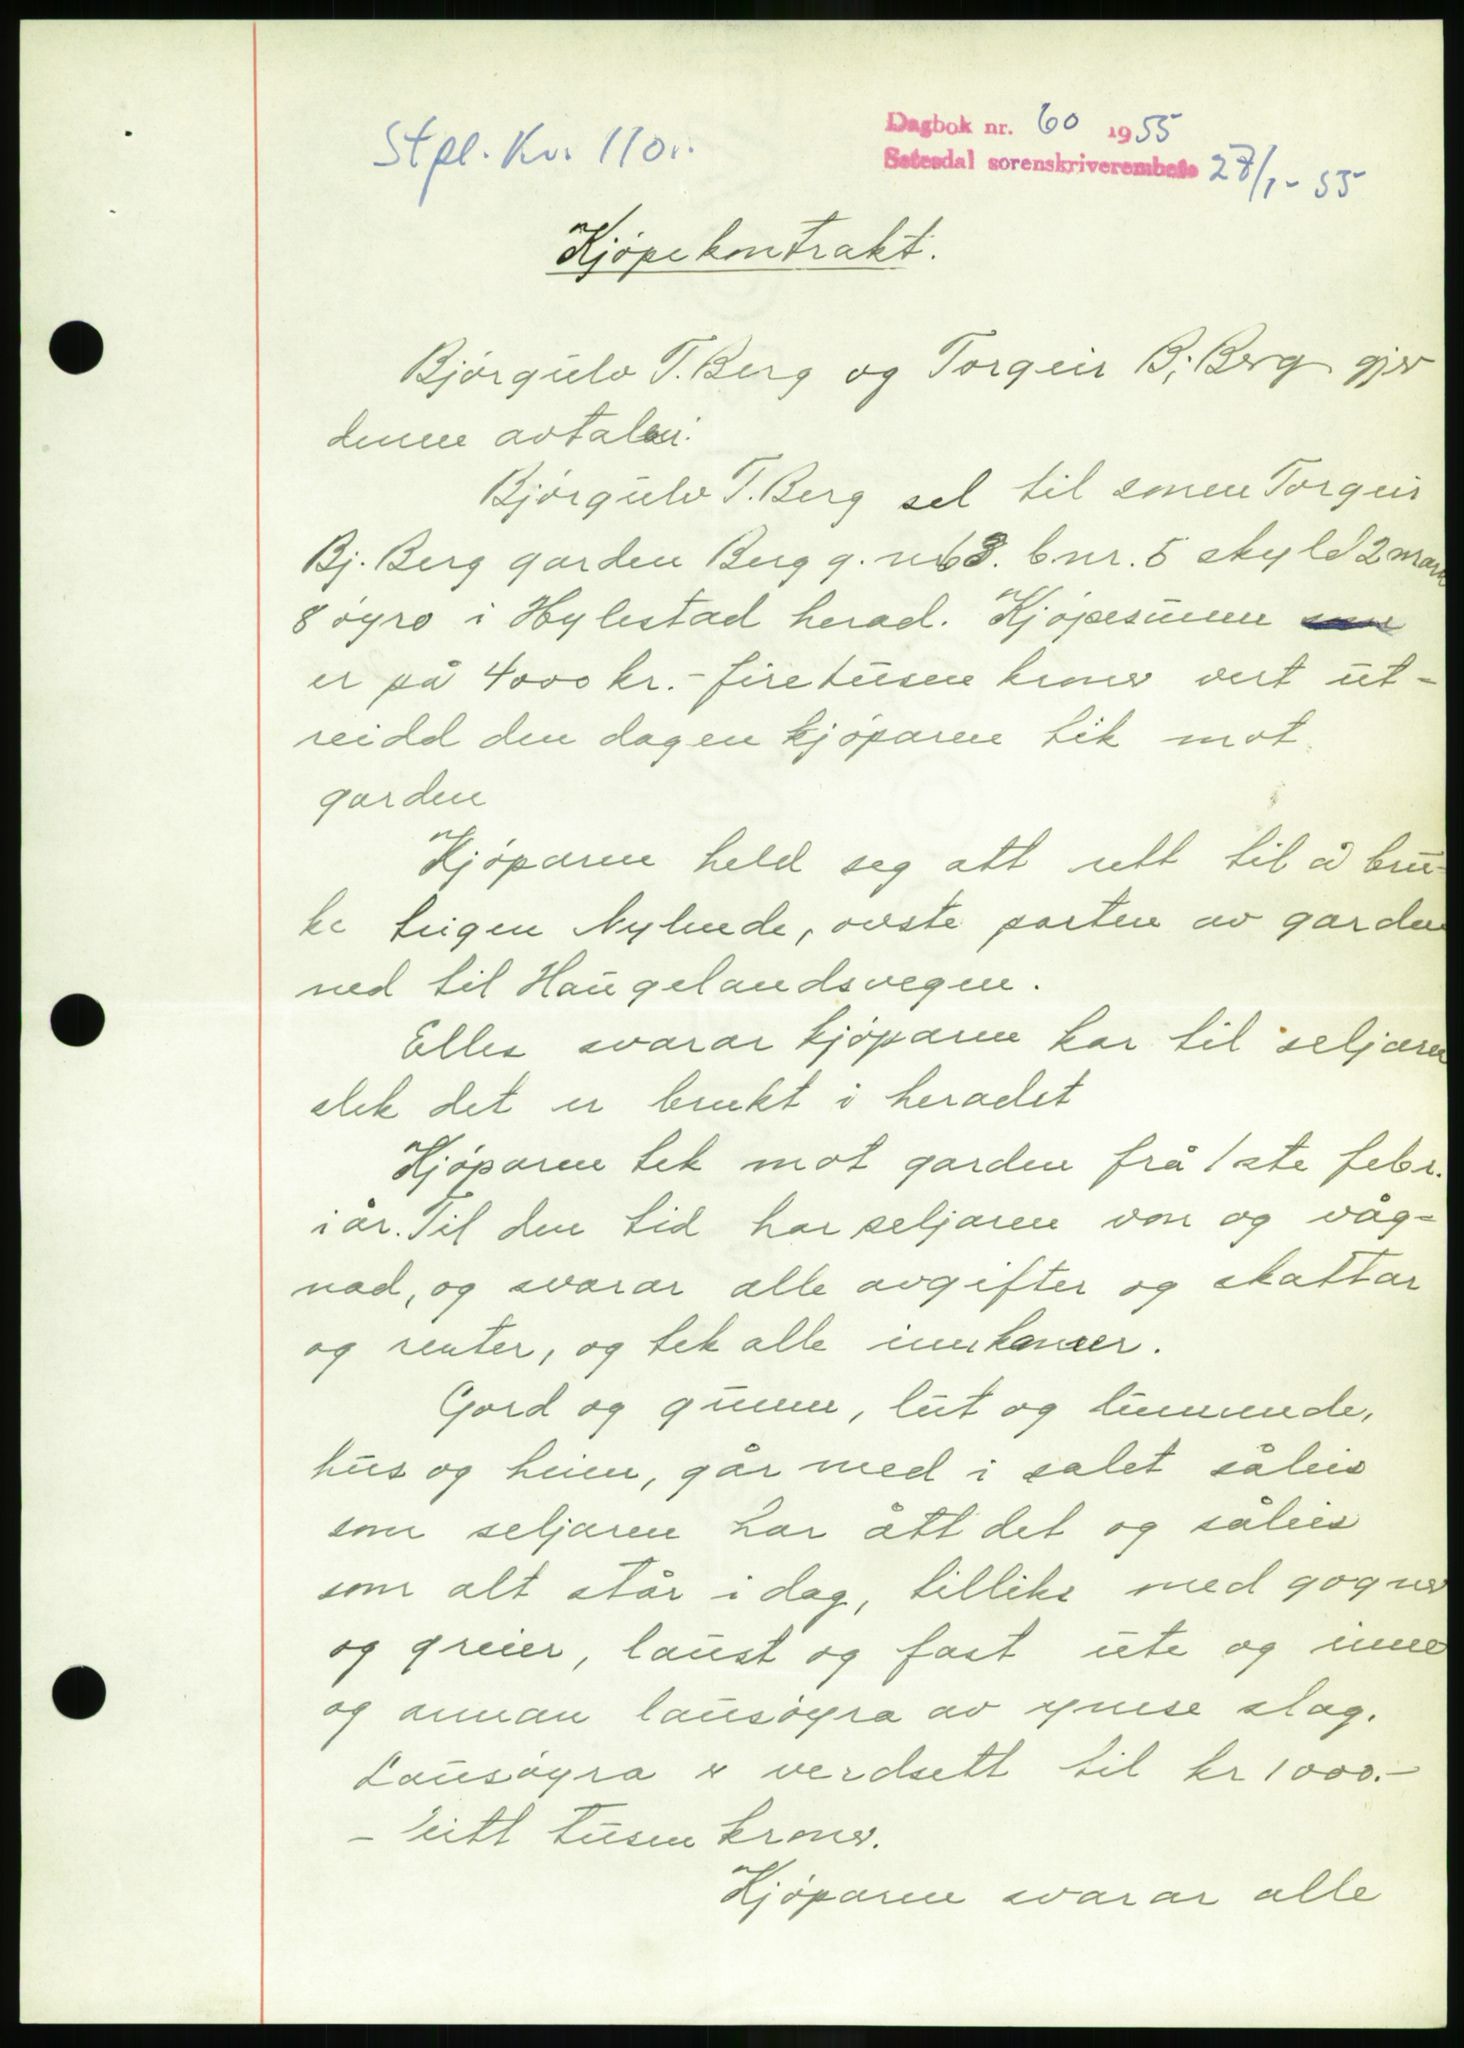 Stpl. Kr. 110.-
Dagbok nr. 60 1955
Setesdal sorenskriverembete 27/1-55
Kjøpekontrakt.
Bjørgulv T. Berg og Torgeir Bj. Berg gjer
denne avtalen:
Bjørgulv T. Berg sel til sonen Torgeir
Bj. Berg garden Berg g. nr 63. bnr. 5 skyld 2 mark
8 øyro i Hylestad herad. Kjøpesumen
er på 4000 kr. - firetusen kroner vert ut-
reidd den dagen kjøparen tek mot
garden
Kjøparen held seg att rett til å bru-
ke teigen Nylende, øvste parten av garden
ned til Haugelandsvegen.
Elles svarar kjøparen kar til seljaren
slek det er brukt i heradet
Kjøparen tek mot garden frå 1ste febr.
i år. Til den tid har seljaren von og våg-
nad, og svarar alle avgifter og skattar
og renter, og tek alle innkomer.
Gard og grunn, lut og lunnende,
hus og heim, går med i salet såleis
som seljaren har ått det og såleis
som alt står i dag, tillike med gogner
og greier, laust og fast ute og inne
og annan lausøyra av ymse slag.
Lausøyra er verdsett til kr 1000.-
- Eitt tusen kroner.
Kjøparen svarar alle